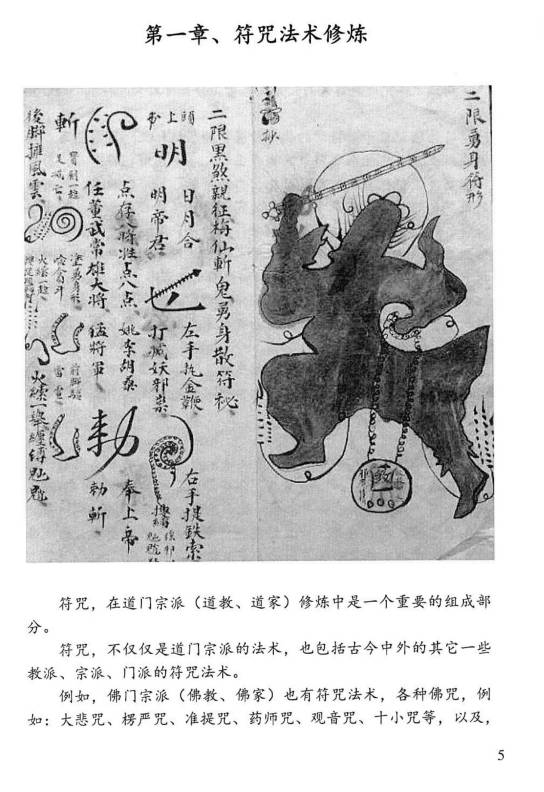 第一章、符咒法术修炼
二限勇身符形
二限黑煞親征梅仙斬鬼勇身散符秘
日月合
左手执金鞭
右手提鉄索
頭上
明
明帝君
打滅妖邪祟
点将八将
点八点
姚李胡桑
奉上帝
任董武常雄大将
猛將軍
勅
勅斬
斬
後脚摧風雲
火縤一舉纏縛
符咒，在道门宗派（道教、道家）修炼中是一个重要的组成部
分。
符咒，不仅仅是道门宗派的法术，也包括古今中外的其它一些
教派、宗派、门派的符咒法术。
例如，佛门宗派（佛教、佛家）也有符咒法术，各种佛咒，例
如：大悲咒、楞严咒、准提咒、药师咒、观音咒、十小咒等，以及，
5